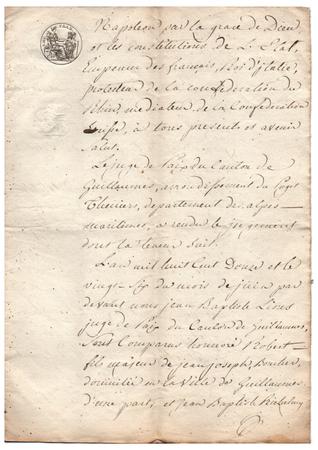 Napoleon par la grace de Dieu
et les constitutions de L'Etat,
Empereur des français, Roi d'Italie,
protecteur de la confederation du
Rhin, mediateur de la Confederation
Suisse, à tous presents et avenir
salut.
Le juge de paix du Canton de
Guillaumes, arrondissement du Puget
Theniers, departement des alpes
maritimes, a rendu le jugement
dont la teneur suit.
L'an mil huit Cent Douze et le
vingt six du mois de juin par
devant nous jean Baptiste
juge de paix du Canton de Guillaumes,
Sont Comparus honoré Robert
fils majeur de jean joseph,
domicilié sur la Ville de Guillaumes
d'une part, et jean Baptiste